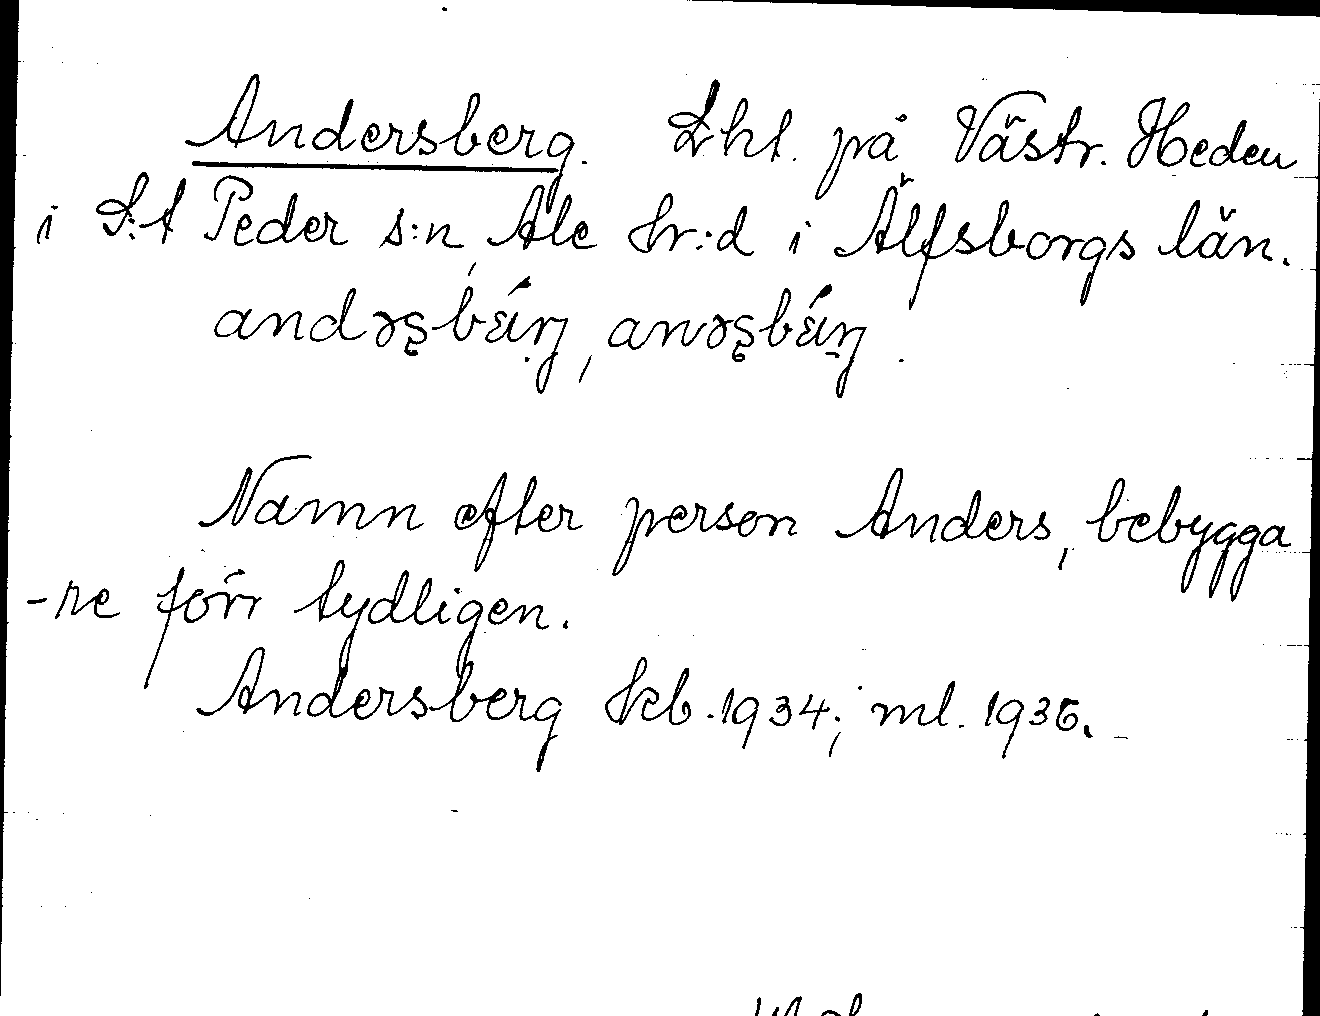 Andersberg. Lht. på Västr. Heden
i S:t Peder s:n, Ale hr:d i Älfsborgs län.
andəʂbǽrŋ, anəʂbǽrŋ.
Namn efter person Anders, bebygga
-re förr tydligen.
Andersberg Skb. 1934; ml. 1936.